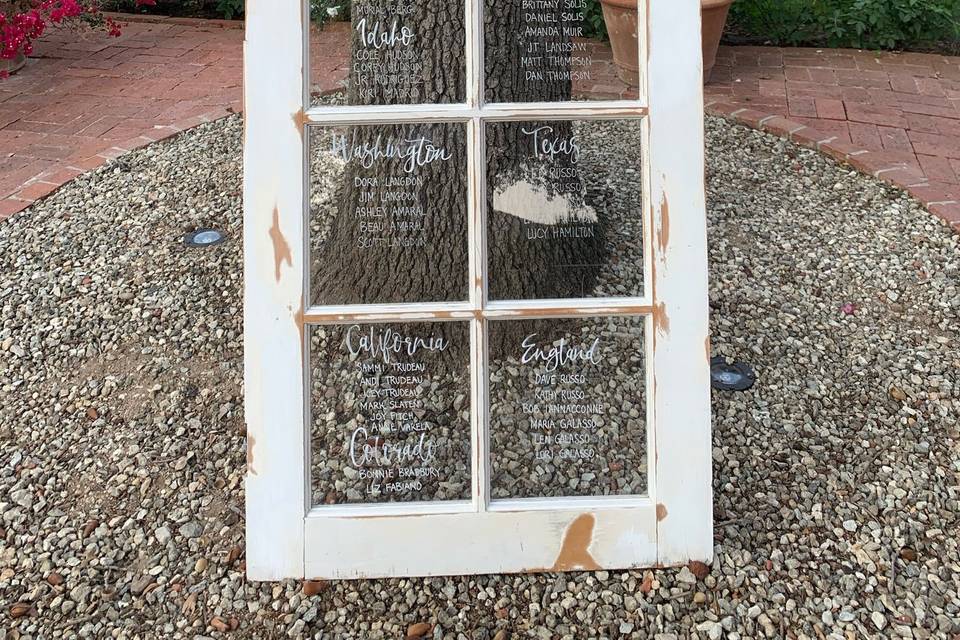 MORAL BERG
Idaho
COLE HUDSON
COREY HUDSON
JR RODRIGUEZ
KIRI MADRID
BRITTANY SOLIS
DANIEL SOLIS
AMANDA MUIR
JT LANDSAW
MATT THOMPSON
DAN THOMPSON
Washington
DORA LANGDON
JIM LANGDON
ASHLEY AMARAL
BEAU AMARAL
SCOTT LANGDON
Texas
RUSSO
RUSSO
LUCY HAMILTON
California
SAMMI TRUDEAU
ANDI TRUDEAU
JOEY TRUDEAU
MARK SLATEN
JOY FITCH
ANNE VARELA
Colorado
BONNIE BRADBURY
LIZ FABIANO
England
DAVE RUSSO
KATHY RUSSO
BOB IANNACCONNE
MARIA GALASSO
LEN GALASSO
LORI GALASSO